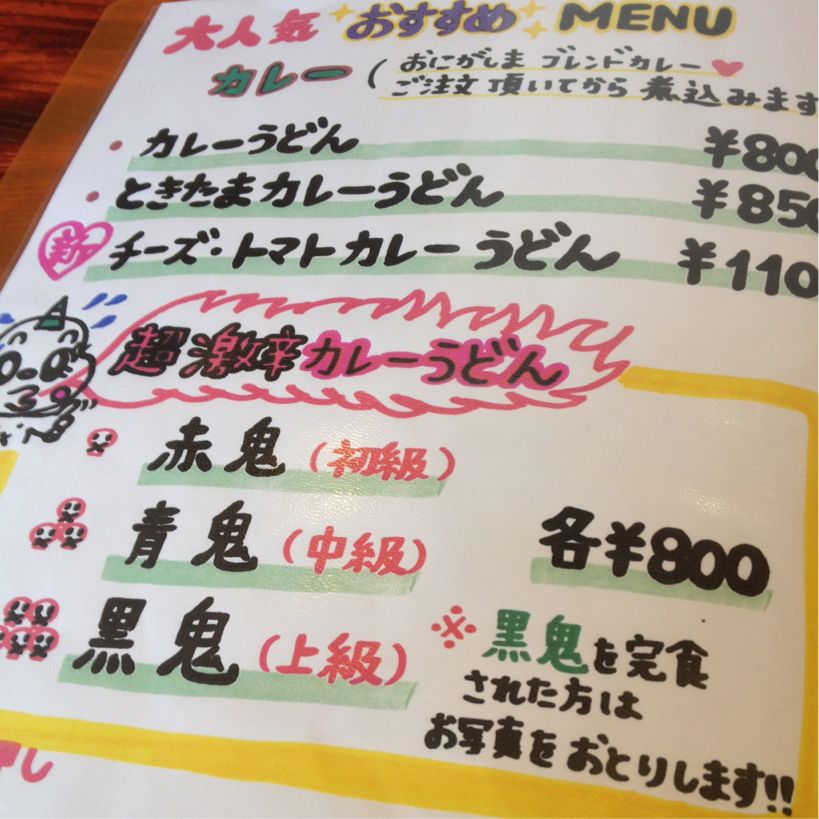 大人気 おすすめ MENU
カレー (おにがしま ブレンドカレー
ご注文 頂いてから 煮込みます
・カレーうどん ¥800
・ときたまカレーうどん ¥850
新 チーズ・トマトカレーうどん ¥110
超激辛カレーうどん
赤鬼 (初級)
青鬼 (中級) 各¥800
黒鬼 (上級)
※黒鬼を完食
された方は
お写真をおとりします!!
押し